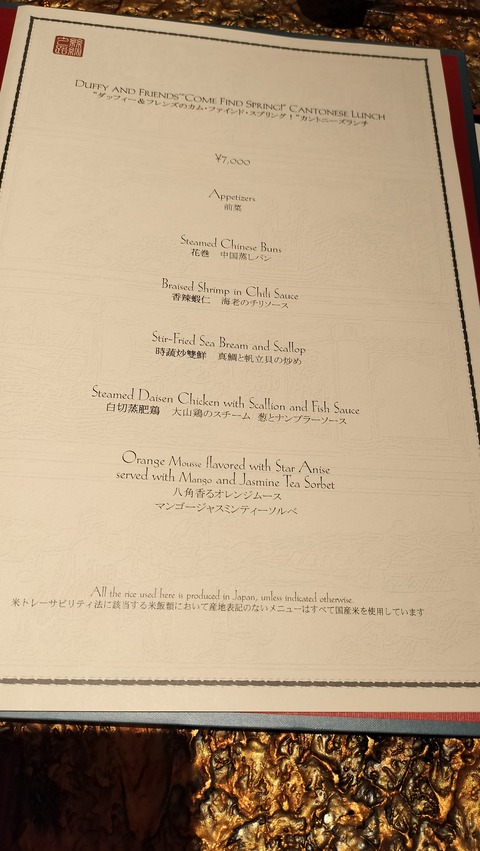 Duffy and Friends "Come Find Spring!" Cantonese Lunch
"ダッフィー&フレンズのカム・ファインド・スプリング！"カントニーズランチ
¥7,000
Appetizers
前菜
Steamed Chinese Buns
花巻　中国蒸しパン
Braised Shrimp in Chili Sauce
香辣蝦仁　海老のチリソース
Stir-Fried Sea Bream and Scallop
時蔬炒雙鮮　真鯛と帆立貝の炒め
Steamed Daisen Chicken with Scallion and Fish Sauce
白切蒸肥鶏　大山鶏のスチーム　葱とナンプラーソース
Orange Mousse flavored with Star Anise
served with Mango and Jasmine Tea Sorbet
八角香るオレンジムース
マンゴージャスミンティーソルベ
All the rice used here is produced in Japan, unless indicated otherwise.
米トレーサビリティ法に該当する米飯類において産地表記のないメニューはすべて国産米を使用しています